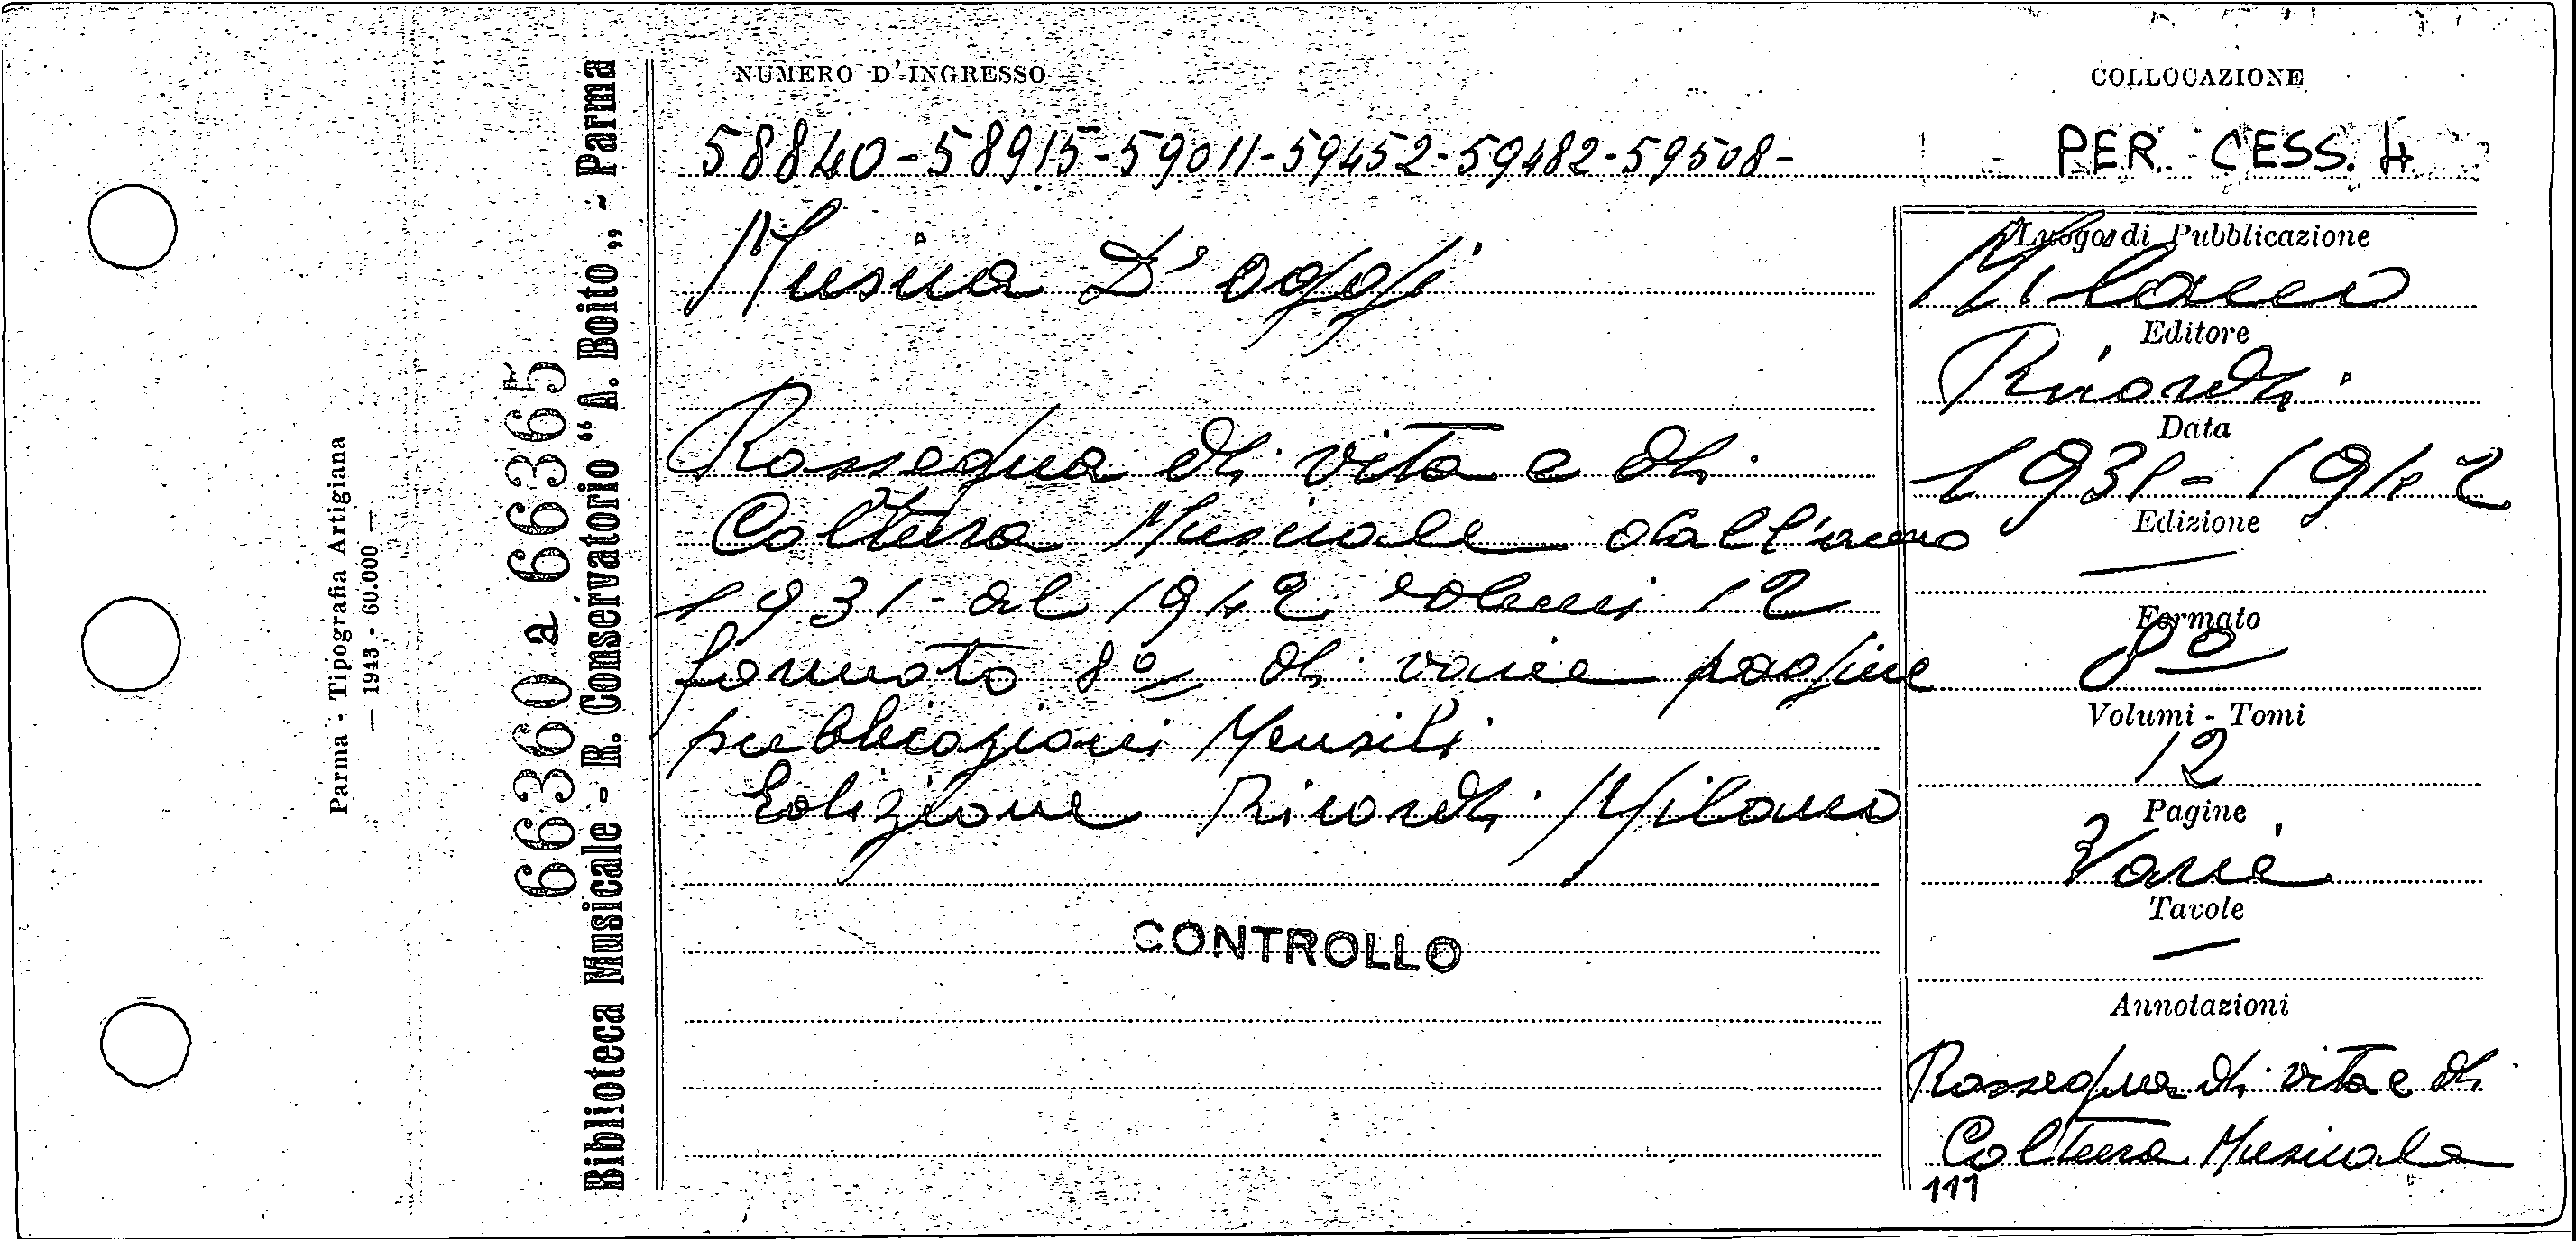 NUMERO D'INGRESSO
COLLOCAZIONE
58840-58915-59011-59452-59482-59508-
PER. CESS. 4
Musica D'oggi
Rassegna di vita e di
Coltura Musicale dall'anno
1931- al 1942 volumi 12
formato 8º di varie pagine
pubblicazioni Mensili
Edizione Ricordi Milano
CONTROLLO
Luogo di Pubblicazione
Milano
Editore
Ricordi
Data
1931-1942
Edizione
—
Formato
8º
Volumi - Tomi
12
Pagine
Varie
Tavole
—
Annotazioni
Rassegna di vita e di
Coltura Musicale
111
Biblioteca Musicale - R. Conservatorio “A. Boito„ - Parma
66360 a 66365
Parma - Tipografia Artigiana
— 1943 - 60.000 —